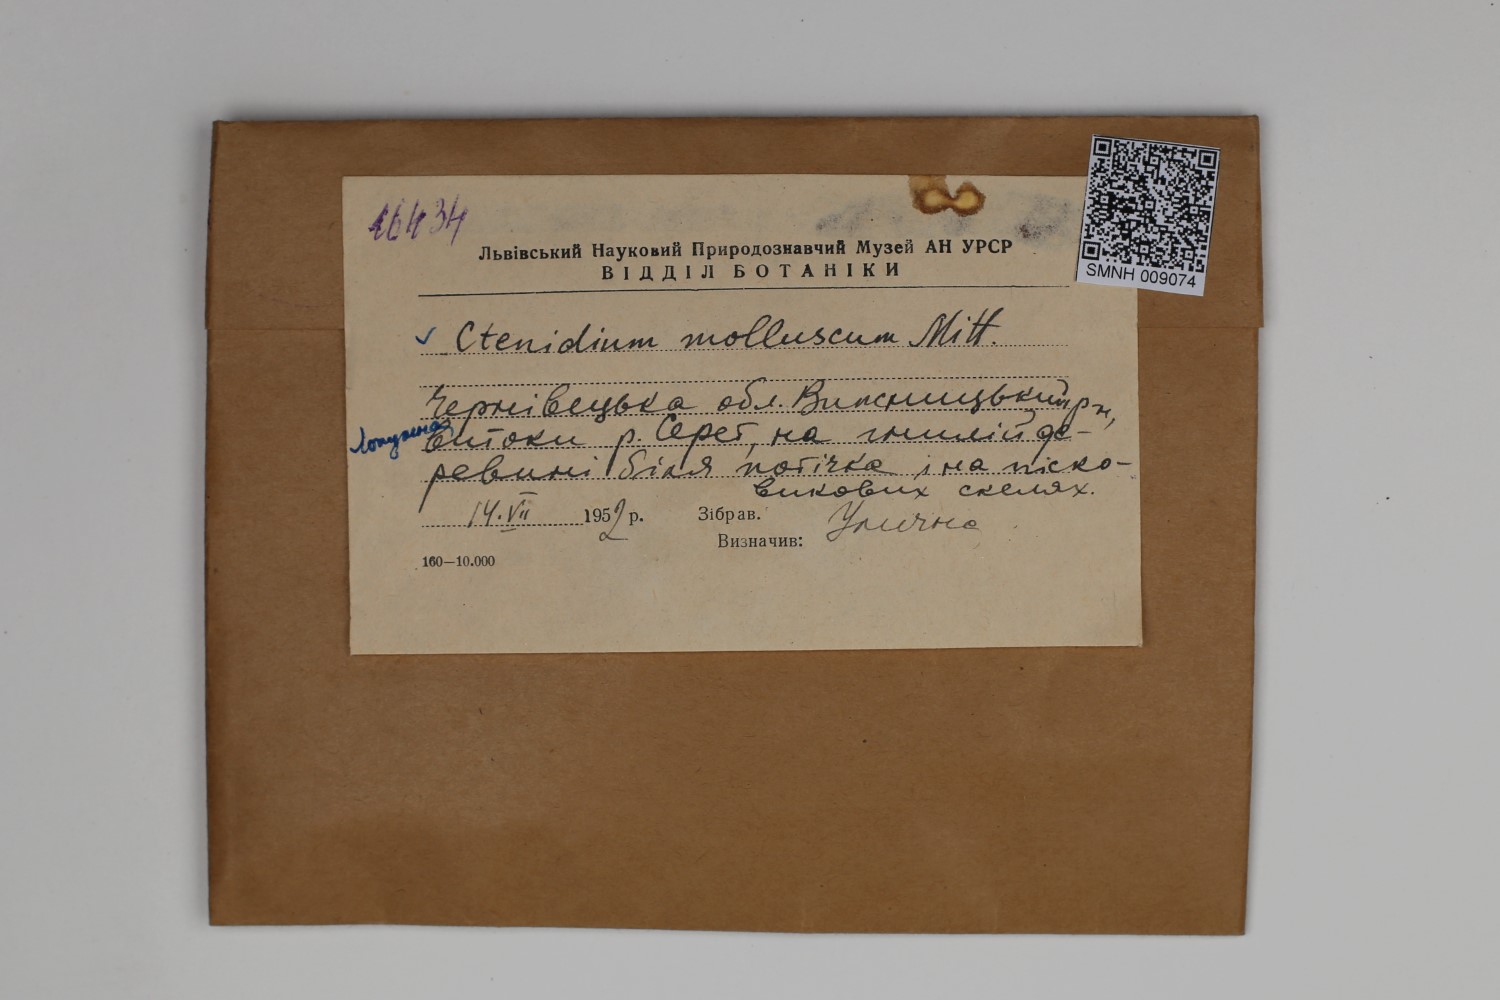 16434
Львівський Науковий Природознавчий Музей АН УРСР
ВІДДІЛ БОТАНІКИ
SMNH 009074
✓ Ctenidium molluscum Mitt.
Чернівецька обл. Вижницький р-н,
Лопушна
витоки р. Серет, на гнилій де-
ревині біля потічка і на піско-
викових скелях.
14.VII 1952 р. Зібрав.
Визначив: Улична
160—10.000